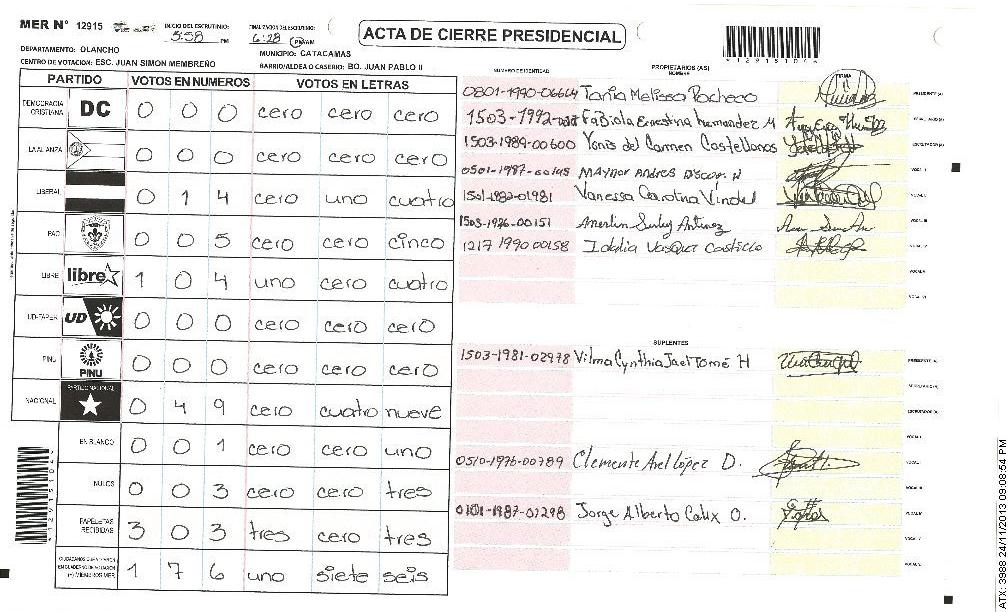 MER N° 12915
INICIO DEL ESCRUTINIO:
5:58 PM
FINALIZACION DEL ESCRUTINIO:
6:28 PM AM
ACTA DE CIERRE PRESIDENCIAL
*12915104*
DEPARTAMENTO: OLANCHO
MUNICIPIO: CATACAMAS
CENTRO DE VOTACION: ESC. JUAN SIMON MEMBREÑO
BARRIO/ALDEA O CASERIO: BO. JUAN PABLO II
PARTIDO VOTOS EN NUMEROS VOTOS EN LETRAS
DEMOCRACIA CRISTIANA DC 0 0 0 cero cero cero
LA ALIANZA 0 0 0 cero cero cero
LIBERAL 0 1 4 cero uno cuatro
PAC 0 0 5 cero cero cinco
LIBRE libre 1 0 4 uno cero cuatro
UD-FAPER UD 0 0 0 cero cero cero
PINU PINU 0 0 0 cero cero cero
NACIONAL PARTIDO NACIONAL 0 4 9 cero cuatro nueve
EN BLANCO 0 0 1 cero cero uno
NULOS 0 0 3 cero cero tres
PAPELETAS RECIBIDAS 3 0 3 tres cero tres
CIUDADANOS QUE VOTARON EN CUADERNO DE VOTACION (+) MIEMBROS MER 1 7 6 uno siete seis
NUMERO DE IDENTIDAD PROPIETARIOS (AS) NOMBRE FIRMA
0801-1990-06604 Tania Melissa Pacheco PRESIDENTE (A)
1503-1992- Fabiola Ernestina Hernandez M SECRETARIO (A)
1503-1989-00600 Yonis del Carmen Castellanos ESCRUTADOR (A)
0501-1987-00145 Maynor Andres VOCAL I
1501-1982-01981 Vanessa Carolina Vindel VOCAL II
1503-1976-00151 VOCAL III
1217 1990 00158 Idalia Vasquez Castillo VOCAL IV
VOCAL V
VOCAL VI
SUPLENTES
1503-1981-02978 Vilma Cynthia Jael Tomé H PRESIDENTE (A)
SECRETARIO (A)
ESCRUTADOR (A)
VOCAL I
0510-1976-00789 Clemente Axel López D. VOCAL II
VOCAL III
0101-1987-01298 Jorge Alberto Calix O. VOCAL IV
VOCAL V
VOCAL VI
ATX: 3988 24/11/2013 09:08:54 PM